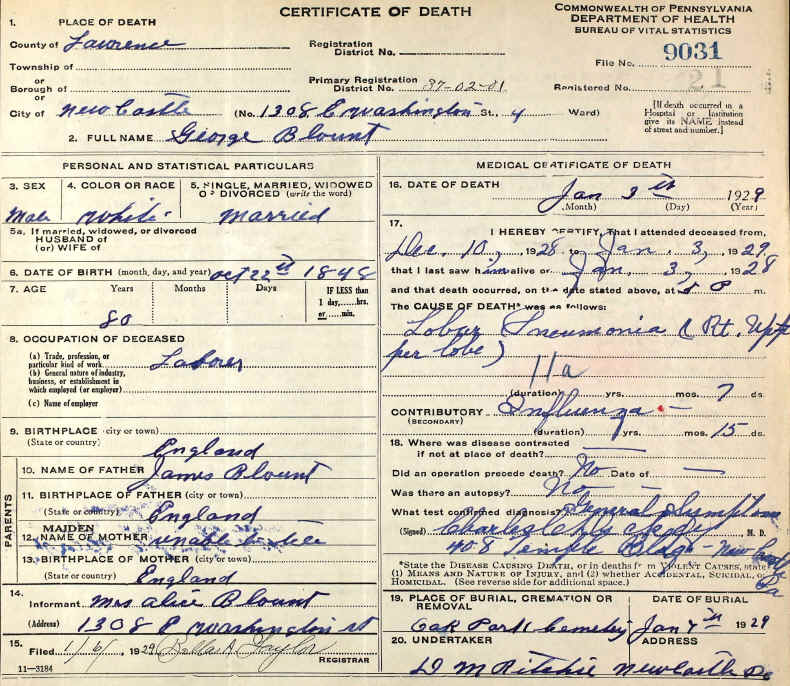 CERTIFICATE OF DEATH
COMMONWEALTH OF PENNSYLVANIA
DEPARTMENT OF HEALTH
BUREAU OF VITAL STATISTICS
1. PLACE OF DEATH
County of Lawrence
Registration District No.
File No. 9031
Township of
or
Borough of
Primary Registration District No. 37-02-01
Registered No. 21
or
City of New Castle
(No. 1308 E Washington St., 4 Ward)
[If death occurred in a Hospital or Institution give its NAME instead of street and number.]
2. FULL NAME George Blount
PERSONAL AND STATISTICAL PARTICULARS
3. SEX
Male
4. COLOR OR RACE
White
5. SINGLE, MARRIED, WIDOWED OR DIVORCED (write the word)
Married
5a. If married, widowed, or divorced
HUSBAND of
(or) WIFE of
6. DATE OF BIRTH (month, day, and year) Oct 22th 1848
7. AGE Years Months Days
80
IF LESS than 1 day,....hrs. or....min.
8. OCCUPATION OF DECEASED
(a) Trade, profession, or particular kind of work Laborer
(b) General nature of industry, business, or establishment in which employed (or employer)
(c) Name of employer
9. BIRTHPLACE (city or town)
(State or country) England
PARENTS
10. NAME OF FATHER James Blount
11. BIRTHPLACE OF FATHER (city or town)
(State or country) England
12. MAIDEN NAME OF MOTHER unable to
13. BIRTHPLACE OF MOTHER (city or town)
(State or country) England
14.
Informant Mrs Alice Blount
(Address) 1308 E Washington st
15.
Filed 1/6/, 1929 Taylor
REGISTRAR
11-3184
MEDICAL CERTIFICATE OF DEATH
16. DATE OF DEATH
Jan 3th 1929
(Month) (Day) (Year)
17.
I HEREBY CERTIFY, That I attended deceased from,
Dec. 10, 1928 to Jan. 3, 1929
that I last saw him alive on Jan. 3, 1928
and that death occurred, on the date stated above, at P m.
The CAUSE OF DEATH* was as follows:
Lobar Pneumonia (Rt. Upp
per lobe)
11a
(duration) yrs. mos. 7 ds.
CONTRIBUTORY Influenza -
(SECONDARY)
(duration) yrs. mos. 15 ds.
18. Where was disease contracted
if not at place of death?
Did an operation precede death? No Date of
Was there an autopsy? No
What test confirmed diagnosis? General Symptoms
(Signed) M. D.
408 Temple Bldg - New Castle Pa
*State the DISEASE CAUSING DEATH, or in deaths from VIOLENT CAUSES, state
(1) MEANS AND NATURE OF INJURY, and (2) whether ACCIDENTAL, SUICIDAL, or
HOMICIDAL. (See reverse side for additional space.)
19. PLACE OF BURIAL, CREMATION OR REMOVAL
Oak Park Cemetery
DATE OF BURIAL
Jan 7th 1929
20. UNDERTAKER
ADDRESS
D M Ritchie New Castle Pa